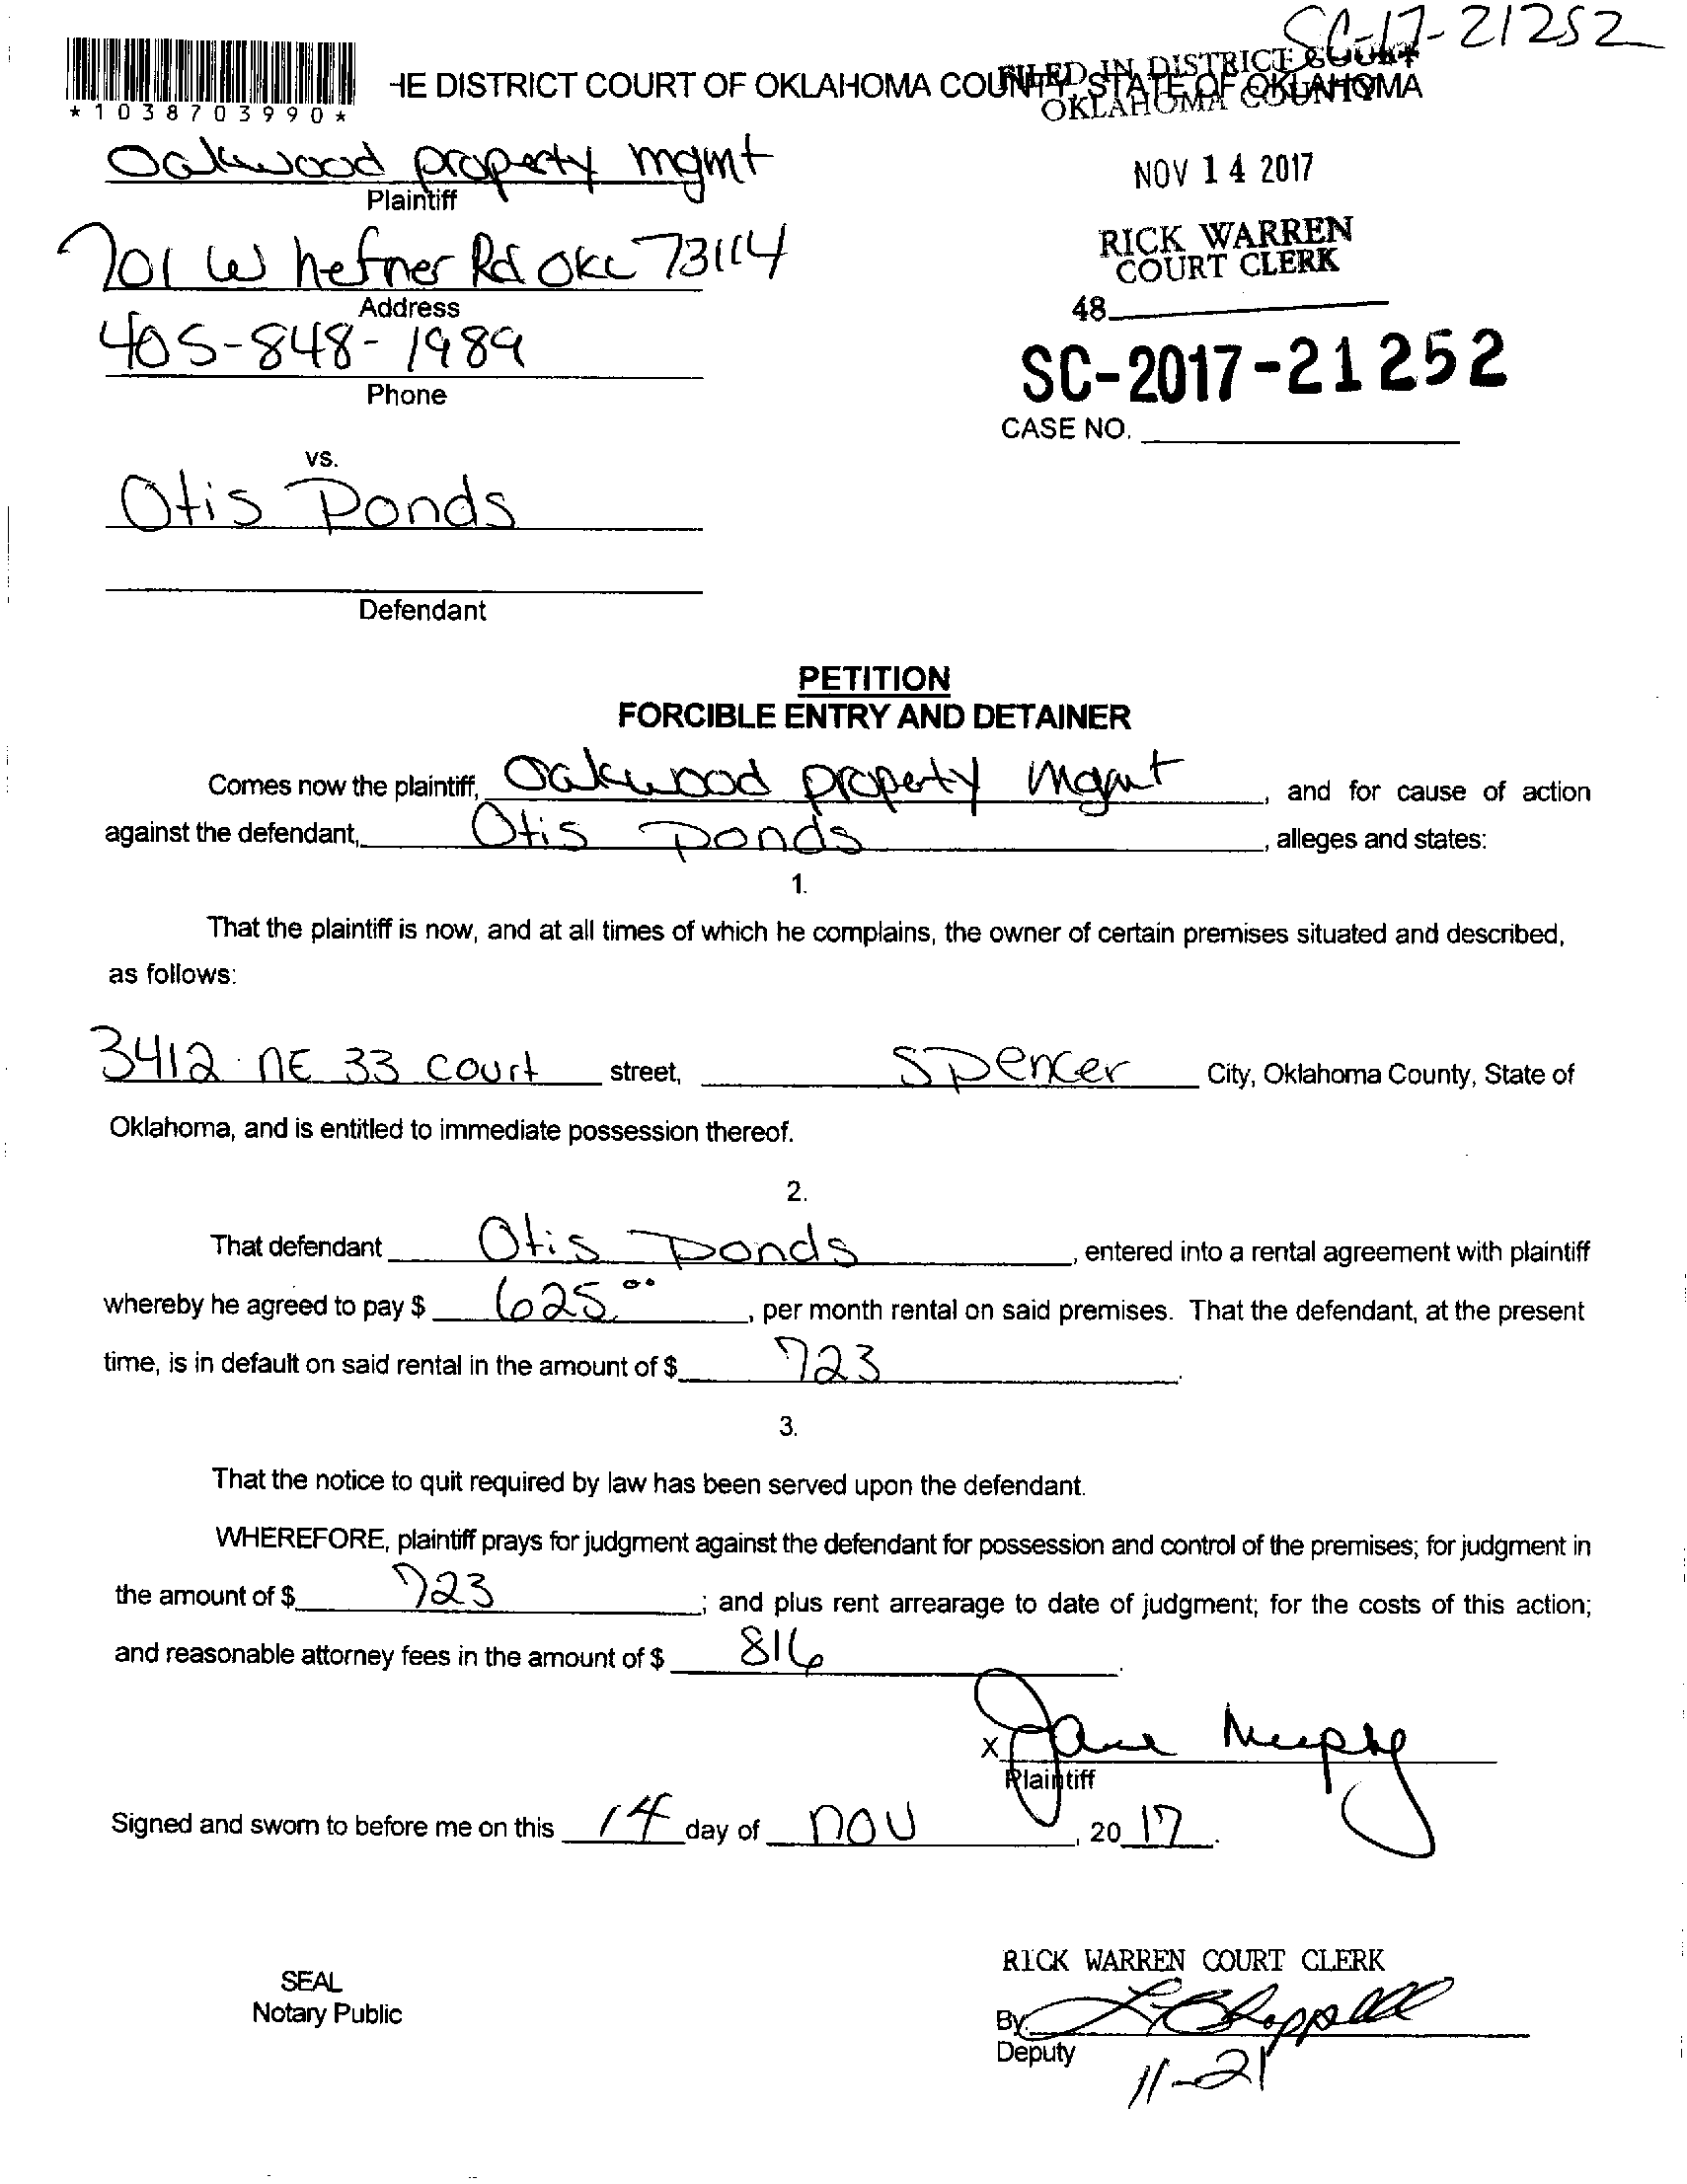 SC-17-21252
HE DISTRICT COURT OF OKLAHOMA COUNTY, STATE OF OKLAHOMA
FILED IN DISTRICT COURT
OKLAHOMA COUNTY
*1038703990*
Oakwood property mgmt
Plaintiff
NOV 14 2017
RICK WARREN
COURT CLERK
701 W hefner Rd OKC 73114
Address
48
405-848-1989
Phone
SC-2017-21252
CASE NO.
vs.
Otis Ponds
Defendant
PETITION
FORCIBLE ENTRY AND DETAINER
Comes now the plaintiff, Oakwood property Mgmt, and for cause of action
against the defendant, Otis Ponds, alleges and states:
1.
That the plaintiff is now, and at all times of which he complains, the owner of certain premises situated and described,
as follows:
3412 NE 33 court street, Spencer City, Oklahoma County, State of
Oklahoma, and is entitled to immediate possession thereof.
2.
That defendant Otis Ponds, entered into a rental agreement with plaintiff
whereby he agreed to pay $ 625.00, per month rental on said premises. That the defendant, at the present
time, is in default on said rental in the amount of $ 723.
3.
That the notice to quit required by law has been served upon the defendant.
WHEREFORE, plaintiff prays for judgment against the defendant for possession and control of the premises; for judgment in
the amount of $ 723; and plus rent arrearage to date of judgment; for the costs of this action;
and reasonable attorney fees in the amount of $ 816.
x Jane Murphy
Plaintiff
Signed and sworn to before me on this 14 day of nov, 20 17.
SEAL
Notary Public
RICK WARREN COURT CLERK
By L Chappell
Deputy
11-21